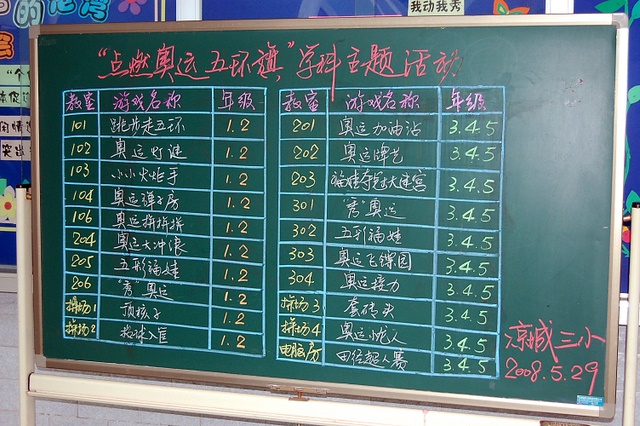 我动我秀
"点燃奥运五环旗"学科主题活动
教室 游戏名称 年级 教室 游戏名称 年级
101 跳步走五环 1.2 201 奥运加油站 3.4.5
102 奥运灯谜 1.2 202 奥运牌艺 3.4.5
103 小小火炬手 1.2 203 福娃夺宝大迷宫 3.4.5
104 奥运弹子房 1.2 301 "秀"奥运 3.4.5
106 奥运拼拼拼 1.2 302 五彩福娃 3.4.5
204 奥运大冲浪 1.2 303 奥运飞镖园 3.4.5
205 五彩福娃 1.2 304 奥运接力 3.4.5
206 "秀"奥运 1.2 操场3 套砖头 3.4.5
操场1 顶核子 1.2 操场4 奥运忧人 3.4.5
操场2 投球入筐 1.2 电脑房 田径超人赛 3.4.5
凉城三小
2008.5.29